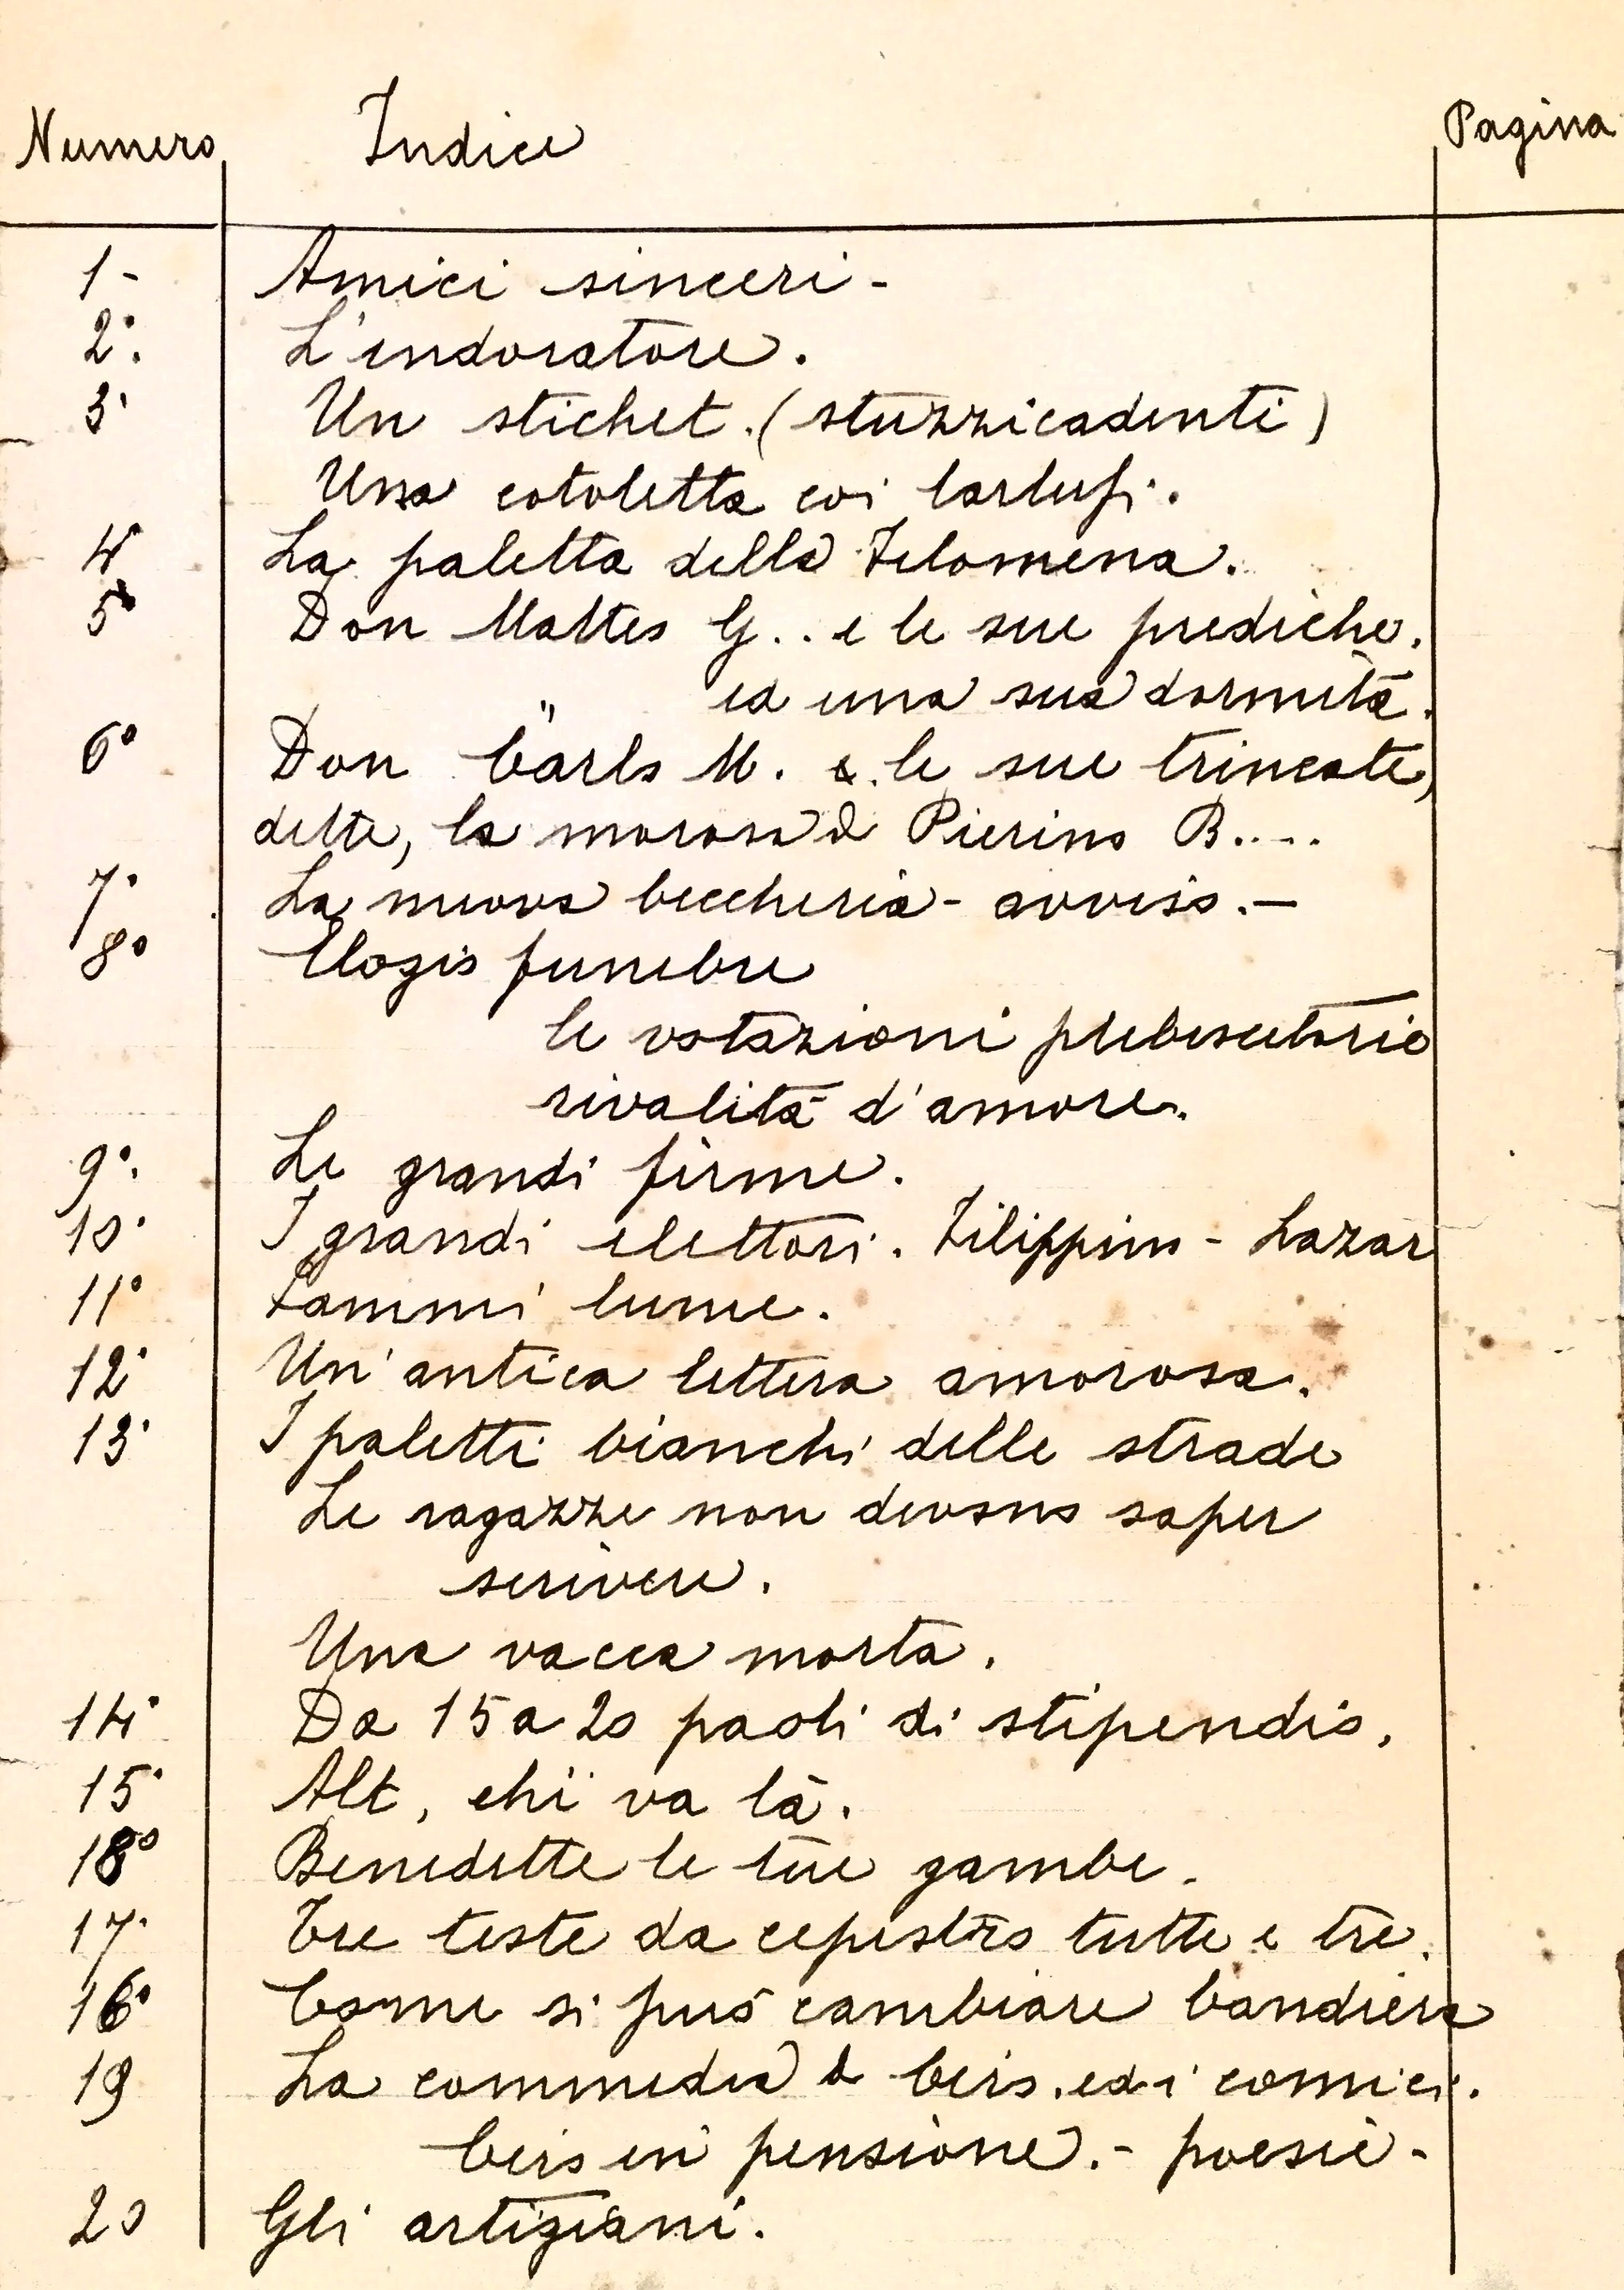 Numero Indice Pagina
1- Amici sinceri -
2° L'indoratore.
3° Un stichet. (stuzzicadenti)
Una cotoletta coi tartufi.
4° La paletta della Filomena.
5° Don Matteo G.. e le sue prediche.
ed una sua dormita.
6° Don Carlo M. e le sue trincate,
dette, la morosa di Pierino B....
7° La nuova beccheria - avviso. -
8° Elogio funebre
le votazioni plebiscitarie
rivalità d'amore.
9° Le grandi firme.
10° I grandi elettori. Filippino - Lazar
11° Fammi lume.
12° Un'antica lettera amorosa.
13° I paletti bianchi delle strade
Le ragazze non devono saper
scrivere.
Una vacca morta.
14° Da 15 a 20 paoli di stipendio.
15° Alt, chi va là.
18° Benedette le tue gambe.
17° Tre teste da capestro tutte e tre.
16° Come si può cambiare bandiera
19 La commedia di ed i comici.
in pensione. - poesie -
20 Gli artigiani.